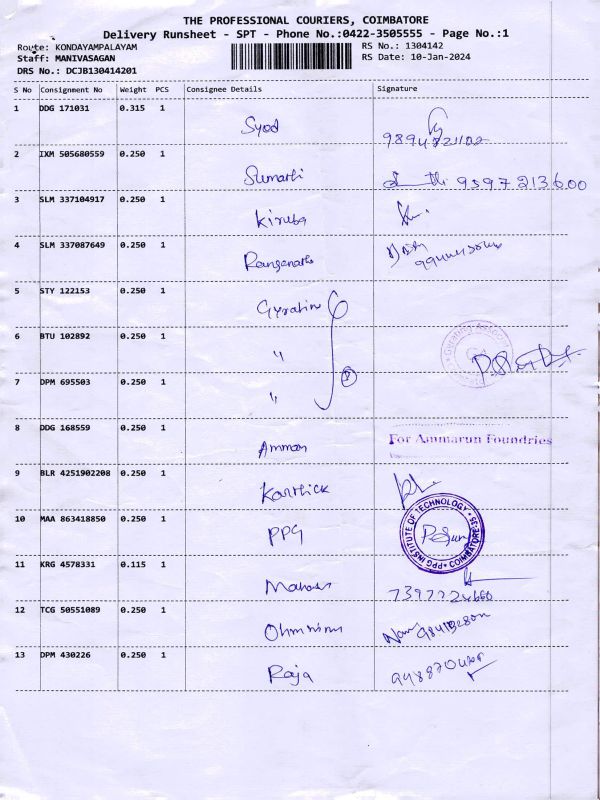 THE PROFESSIONAL COURIERS, COIMBATORE
Delivery Runsheet - SPT - Phone No.:0422-3505555 - Page No.:1
Route: KONDAYAMPALAYAM
Staff: MANIVASAGAN
DRS No.: DCJB130414201
RS No.: 1304142
RS Date: 10-Jan-2024
S No Consignment No Weight PCS Consignee Details Signature
1 DDG 171031 0.315 1 Syed
2 IXM 505680559 0.250 1 Sumathi 9597213600
3 SLM 337104917 0.250 1 Kiruba
4 SLM 337087649 0.250 1 Ranganath
5 STY 122153 0.250 1
6 BTU 102892 0.250 1 "
7 DPM 695503 0.250 1 "
8 DDG 168559 0.250 1 Amman For Ammarun Foundries
9 BLR 4251902208 0.250 1 Karthick
10 MAA 863418850 0.250 1 PPG PPG INSTITUTE OF TECHNOLOGY COIMBATORE-35
11 KRG 4578331 0.115 1
12 TCG 50551089 0.250 1
13 DPM 430226 0.250 1 Raja